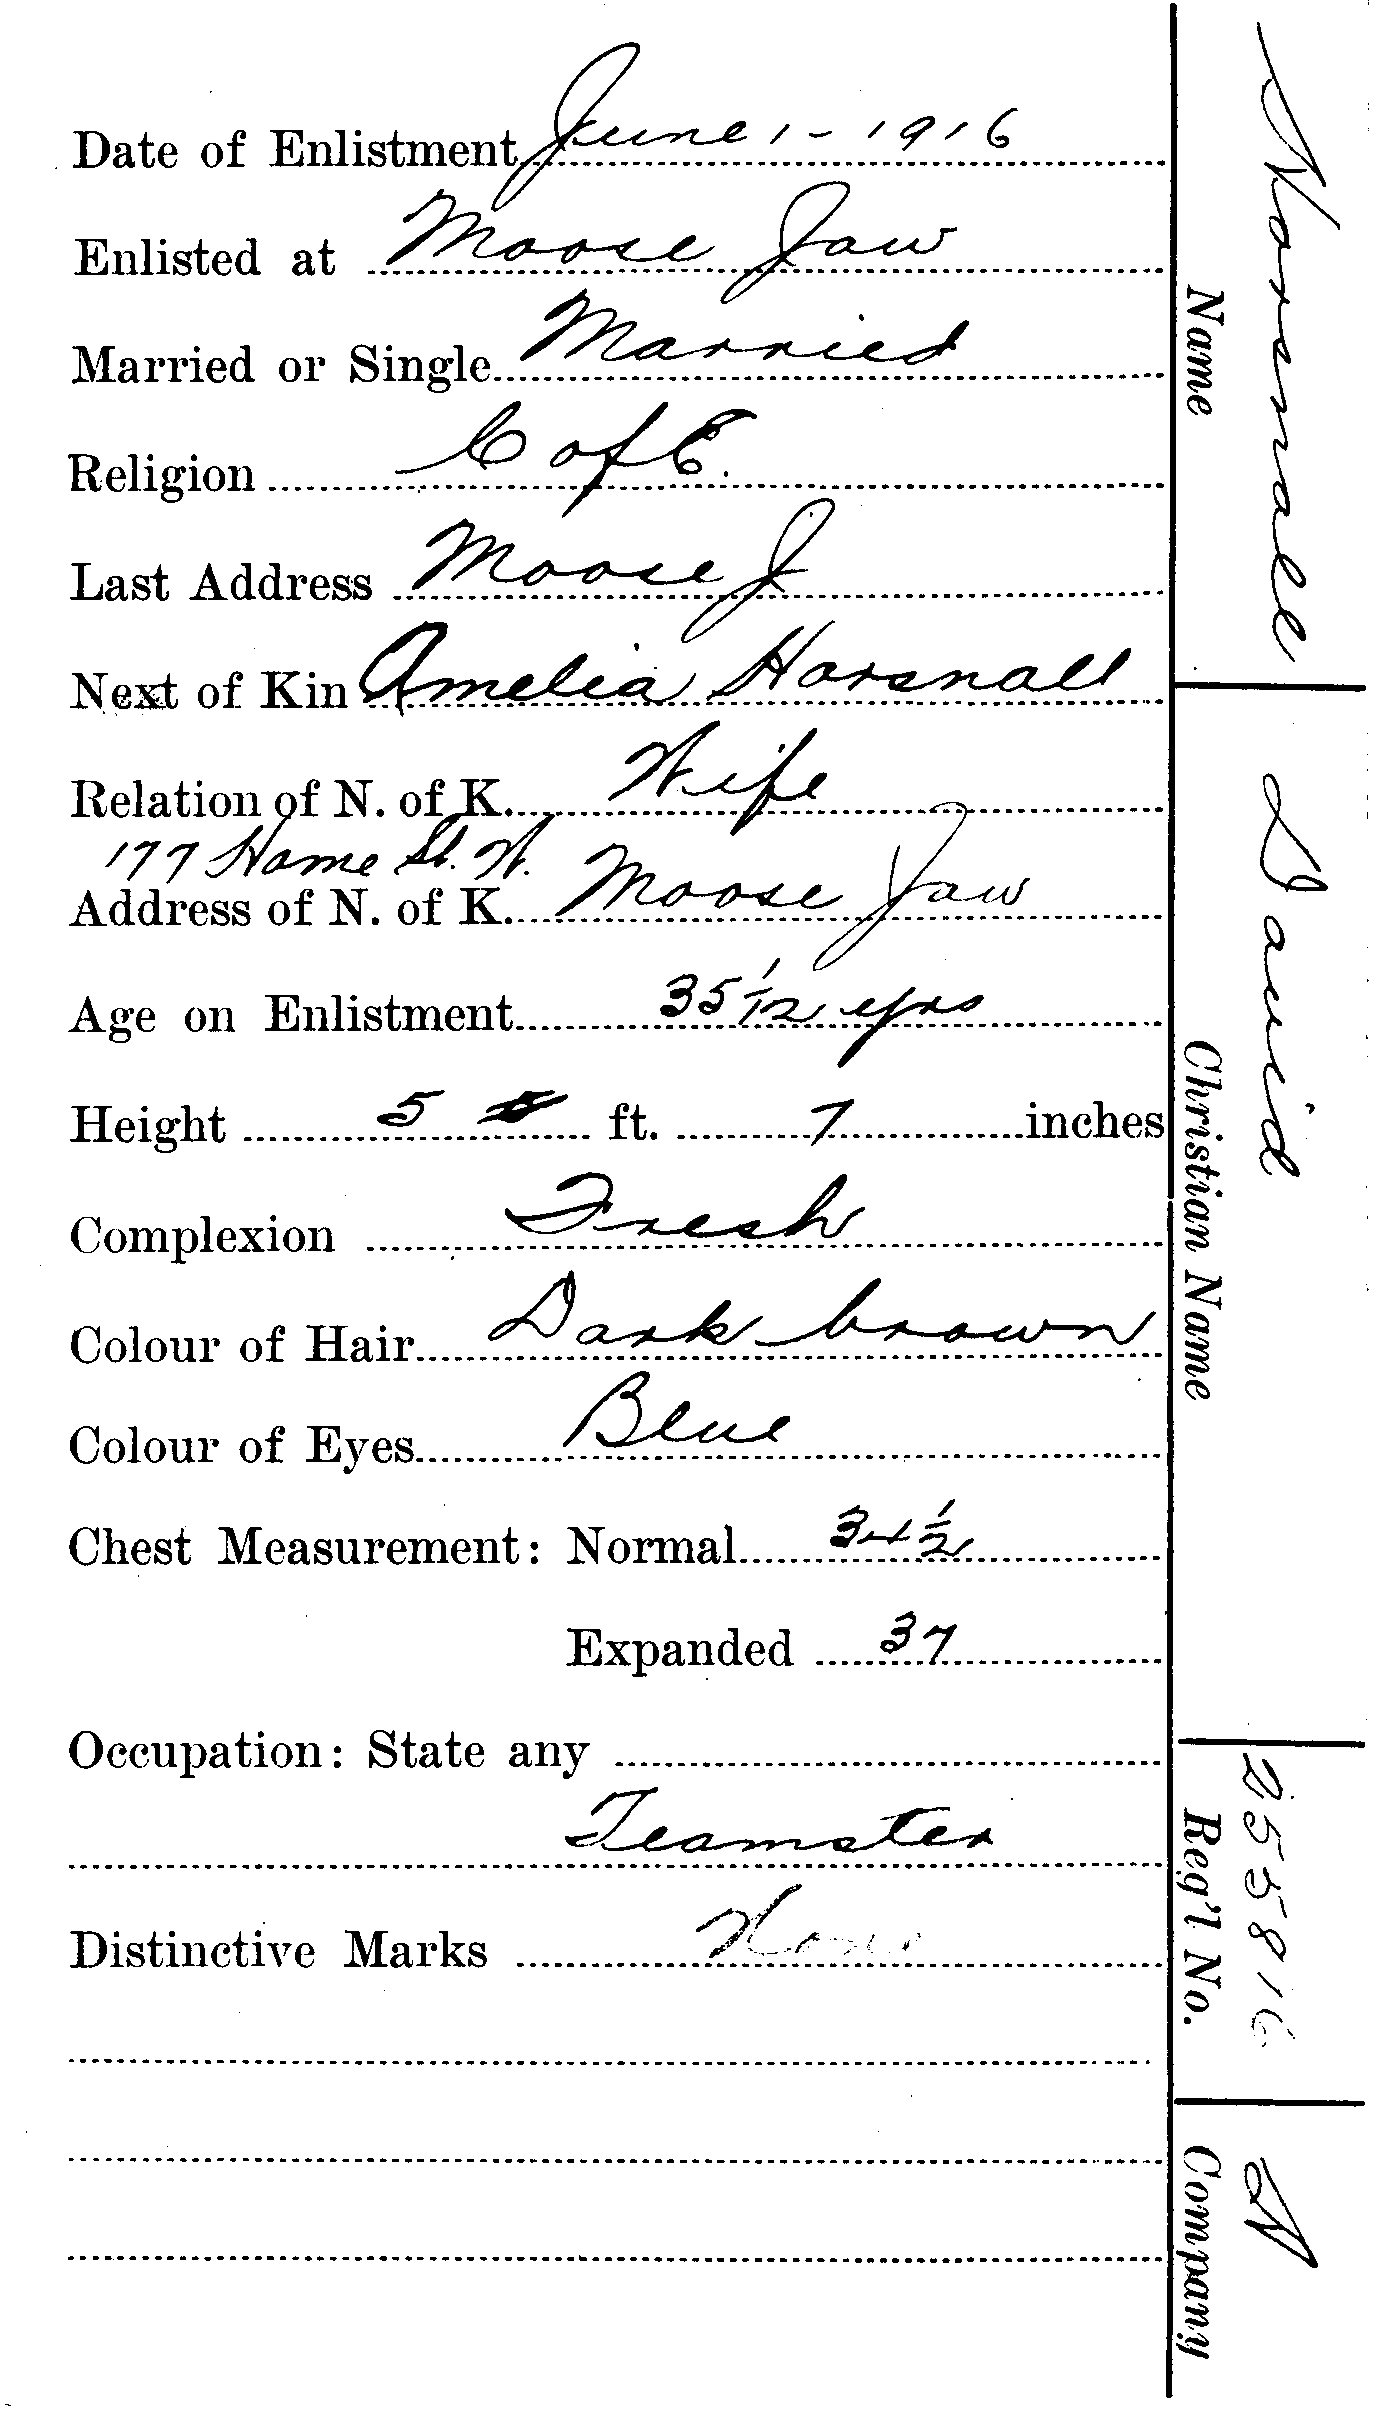 Date of Enlistment June 1 - 1916
Enlisted at Moose Jaw
Married or Single Married
Religion C of E.
Last Address Moose J
Next of Kin Amelia Horsnall
Relation of N. of K. Wife
177 Home St. W.
Address of N. of K. Moose Jaw
Age on Enlistment 35 1/12 yrs
Height 5 ft. 7 inches
Complexion Fresh
Colour of Hair Dark brown
Colour of Eyes Blue
Chest Measurement: Normal 34 1/2
Expanded 37
Occupation: State any
Teamster
Distinctive Marks None
Name Horsnall
Christian Name David
Reg'l No. 255816
Company